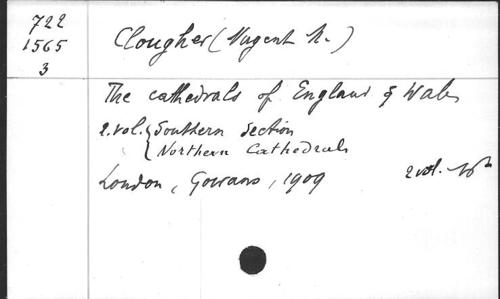 722
1565
3
Clougher (Nugent M.)
The cathedrals of England & Wales
2. vol. { Southern Section
{ Northern Cathedrals
London, Gowans, 1909
2 vol.